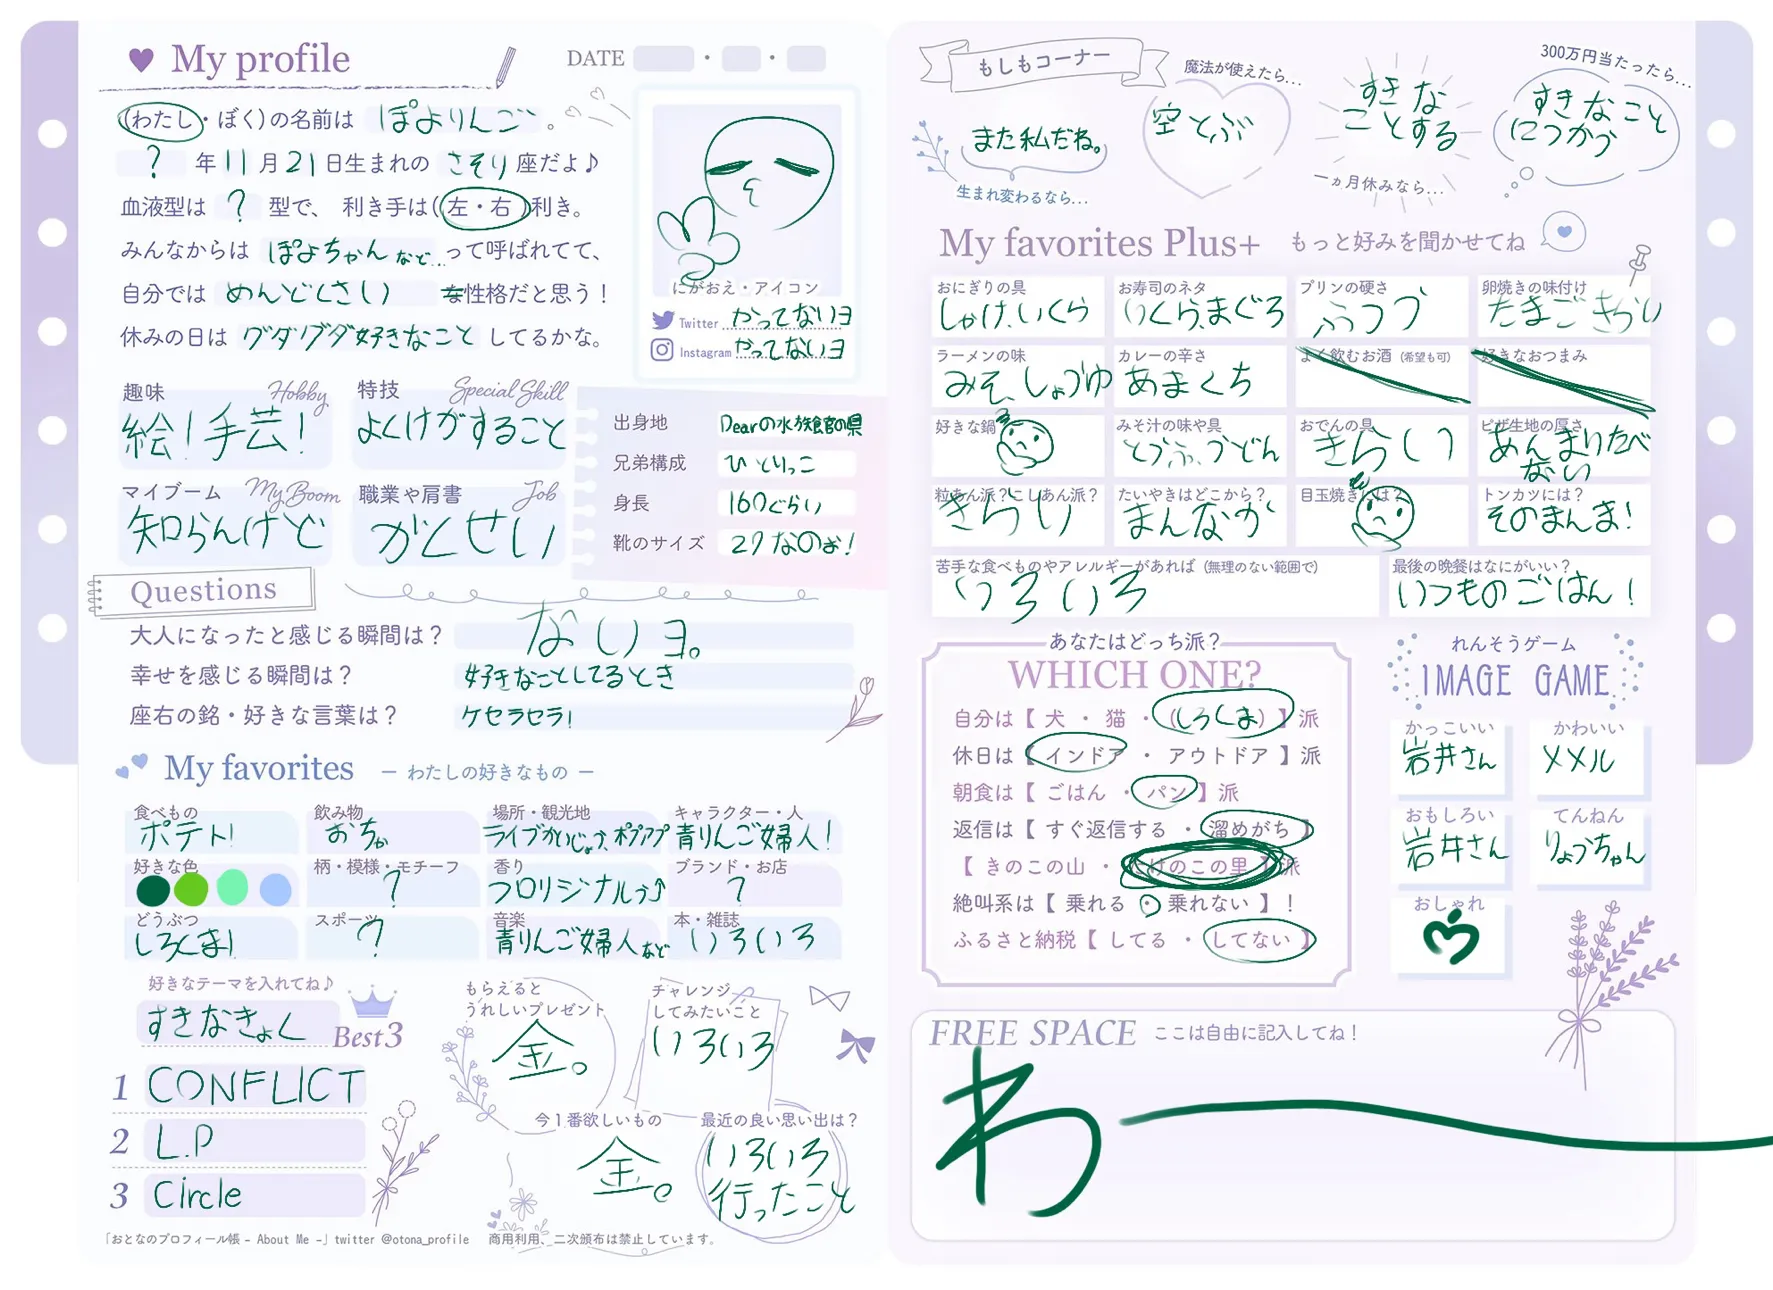 My profile
DATE ・ ・
(わたし・ぼく)の名前は ぽよりんご 。
? 年 11 月 21 日生まれの さそり 座だよ♪
血液型は ? 型で、 利き手は(左・右)利き。
みんなからは ぽよちゃん など… って呼ばれてて、
自分では めんどくさい な性格だと思う!
休みの日は グダグダ好きなこと してるかな。
にがおえ・アイコン
Twitter やってないヨ
Instagram やってないヨ
趣味 Hobby
絵!手芸!
特技 Special Skill
よくけがすること
マイブーム My Boom
知らんけど
職業や肩書 Job
がくせい
出身地 Dearの水族館の県
兄弟構成 ひとりっこ
身長 160ぐらい
靴のサイズ 27なのぉ!
Questions
大人になったと感じる瞬間は? ないヨ。
幸せを感じる瞬間は? 好きなことしてるとき
座右の銘・好きな言葉は? ケセラセラ!
My favorites ー わたしの好きなもの ー
食べもの
ポテト!
飲み物
おちゃ
場所・観光地
ライブかいじょう、ポプアプ
キャラクター・人
青りんご婦人!
好きな色
柄・模様・モチーフ
?
香り
フロリジナルぅ↑
ブランド・お店
?
どうぶつ
しろくま!
スポーツ
?
音楽
青りんご婦人など
本・雑誌
いろいろ
好きなテーマを入れてね♪
すきなきょく
Best3
1 CONFLICT
2 L.P
3 Circle
もらえると
うれしいプレゼント
金。
チャレンジ
してみたいこと
いろいろ
今1番欲しいもの
金。
最近の良い思い出は?
いろいろ
行ったこと
「おとなのプロフィール帳 - About Me -」twitter @otona_profile 商用利用、二次頒布は禁止しています。
もしもコーナー
また私だね。
生まれ変わるなら...
魔法が使えたら...
空とぶ
すきな
ことする
一ヵ月休みなら...
300万円当たったら...
すきなこと
につかう
My favorites Plus+ もっと好みを聞かせてね
おにぎりの具
しゃけ、いくら
お寿司のネタ
いくら、まぐろ
プリンの硬さ
ふつう
卵焼きの味付け
たまごきらい
ラーメンの味
みそ、しょうゆ
カレーの辛さ
あまくち
よく飲むお酒 (希望も可)
好きなおつまみ
好きな鍋
みそ汁の味や具
とうふ、うどん
おでんの具
きらい
ピザ生地の厚さ
あんまりたべ
ない
粒あん派?こしあん派?
きらい
たいやきはどこから?
まんなか
目玉焼きには?
トンカツには?
そのまんま!
苦手な食べものやアレルギーがあれば (無理のない範囲で)
いろいろ
最後の晩餐はなにがいい?
いつものごはん!
あなたはどっち派?
WHICH ONE?
自分は【 犬 ・ 猫 ・ (しろくま) 】派
休日は【 インドア ・ アウトドア 】派
朝食は【 ごはん ・ パン 】派
返信は【 すぐ返信する ・ 溜めがち 】
【 きのこの山 ・ たけのこの里 】派
絶叫系は【 乗れる ・ 乗れない 】!
ふるさと納税【 してる ・ してない 】
れんそうゲーム
IMAGE GAME
かっこいい
岩井さん
かわいい
メメル
おもしろい
岩井さん
てんねん
りょうちゃん
おしゃれ
FREE SPACE ここは自由に記入してね!
わー